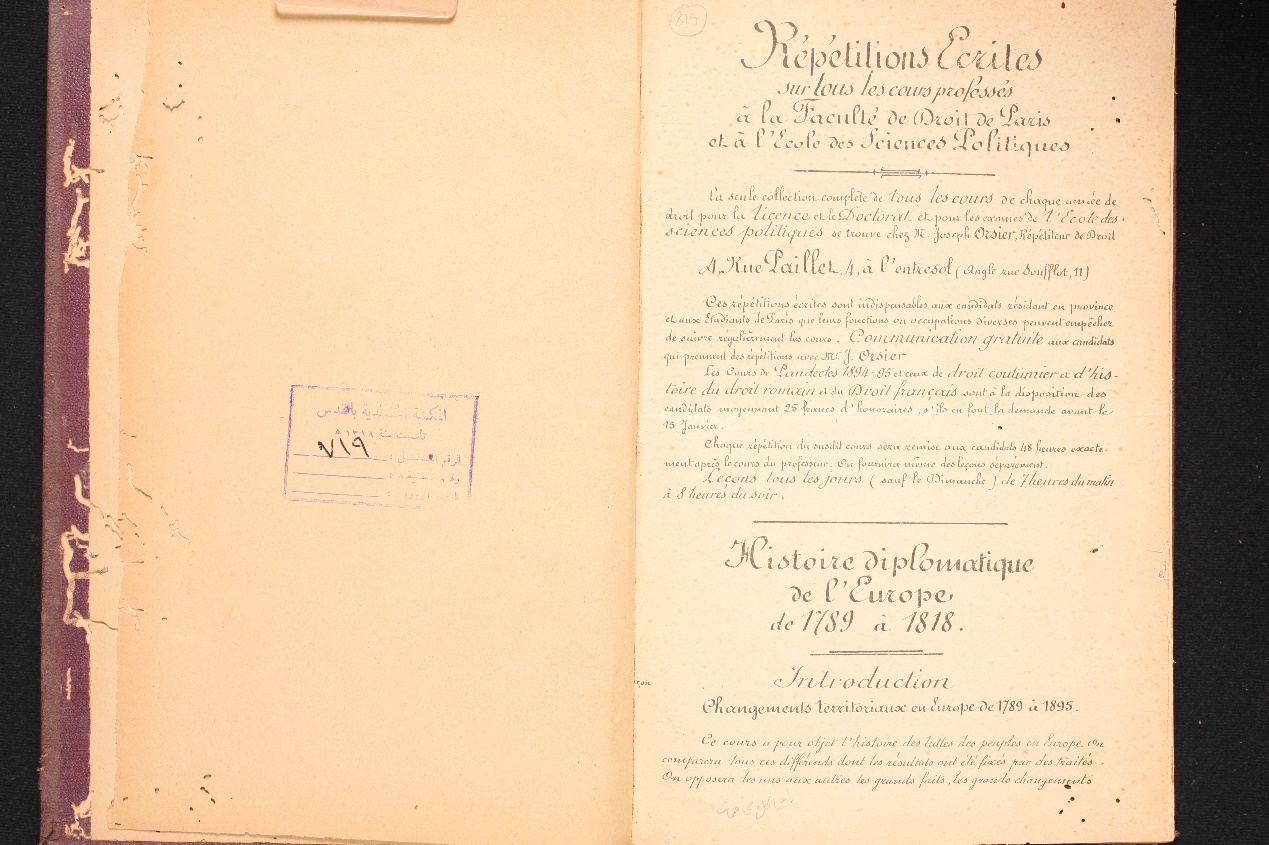 المكتبة الخالدية بالقدس
تأسست سنة ١٣١٨ ه
الرقم المسلسل : ٧١٩
819
Répétitions Ecrites
sur tous les cours professés
à la Faculté de Droit de Paris
et à l'Ecole des Sciences Politiques
La seule collection complète de tous les cours de chaque année de
droit pour la licence et le Doctorat et pour les examens de l'Ecole des
sciences politiques se trouve chez M. Joseph Orsier, Répétiteur de Droit
4, Rue Paillet, 4, à l'entresol (Angle rue Soufflot, 11)
Ces répétitions écrites sont indispensables aux candidats résidant en province
et aux Etudiants de Paris que leurs fonctions ou occupations diverses peuvent empêcher
de suivre régulièrement les cours. Communication gratuite aux candidats
qui prennent des répétitions avec Mr J. Orsier
Les Cours de Pandectes 1894-95 et ceux de droit coutumier et d'his-
toire du droit romain et du Droit français sont à la disposition des
candidats moyennant 25 francs d'honoraires, s'ils en font la demande avant le
15 Janvier.
Chaque répétition du susdit cours sera remise aux candidats 48 heures exacte-
ment après le cours du professeur. On fournira même des leçons séparément.
Leçons tous les jours (sauf le Dimanche) de 7 heures du matin
à 8 heures du soir.
Histoire diplomatique
de l'Europe
de 1789 à 1818.
Introduction
Changements territoriaux en Europe de 1789 à 1895.
Ce cours a pour objet l'histoire des luttes des peuples en Europe. On
comparera tous ces différends dont les résultats ont été fixés par des traités.
On opposera les uns aux autres les grands faits, les grands changements